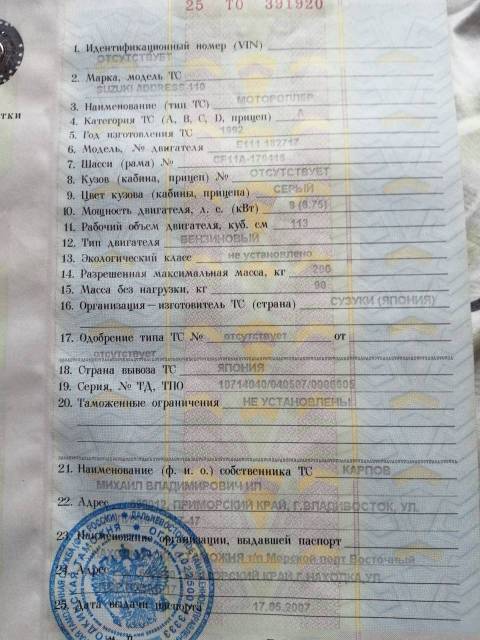 25 ТО 391920
1. Идентификационный номер (VIN)
ОТСУТСТВУЕТ
2. Марка, модель ТС
SUZUKI ADDRESS 110
3. Наименование (тип ТС) МОТОРОЛЛЕР
4. Категория ТС (А, В, С, D, прицеп) А
5. Год изготовления ТС 1992
6. Модель, № двигателя E111 182717
7. Шасси (рама) № CF11A-170416
8. Кузов (кабина, прицеп) № ОТСУТСТВУЕТ
9. Цвет кузова (кабины, прицепа) СЕРЫЙ
10. Мощность двигателя, л. с. (кВт) 9 (6.75)
11. Рабочий объем двигателя, куб. см 113
12. Тип двигателя БЕНЗИНОВЫЙ
13. Экологический класс не установлено
14. Разрешенная максимальная масса, кг
15. Масса без нагрузки, кг 90
16. Организация—изготовитель ТС (страна) СУЗУКИ (ЯПОНИЯ)
17. Одобрение типа ТС № отсутствует от
отсутствует
18. Страна вывоза ТС ЯПОНИЯ
19. Серия, № ТД, ТПО
20. Таможенные ограничения НЕ УСТАНОВЛЕНЫ
21. Наименование (ф. и. о.) собственника ТС КАРПОВ
МИХАИЛ ВЛАДИМИРОВИЧ ИП
22. Адрес ПРИМОРСКИЙ КРАЙ, Г.ВЛАДИВОСТОК, УЛ.
-17
23. Наименование организации, выдавшей паспорт
т/п Морской порт Восточный
24. Адрес КРАЙ Г.НАХОДКА УЛ
25. Дата выдачи паспорта 17.05.2007
тки